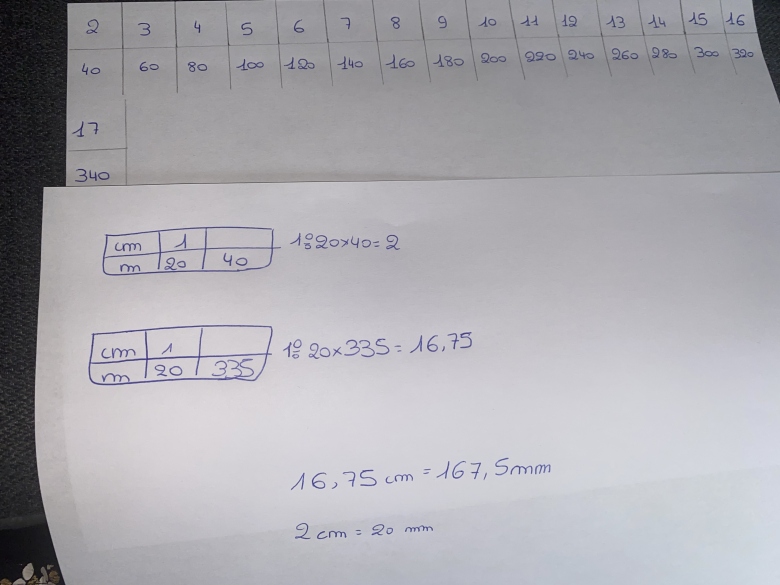 2 3 4 5 6 7 8 9 10 11 12 13 14 15 16
40 60 80 100 120 140 160 180 200 220 240 260 280 300 320
17
340
cm 1
m 20 40
1÷20×40=2
cm 1
m 20 335
1÷20×335=16,75
16,75 cm = 167,5mm
2 cm = 20 mm